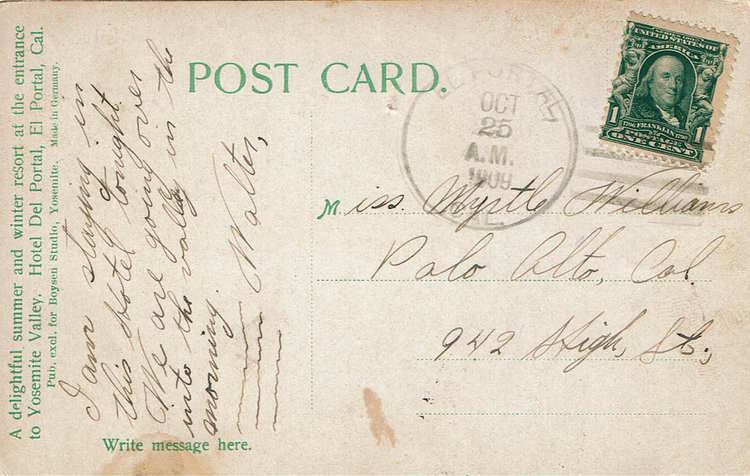 A delightful summer and winter resort at the entrance
to Yosemite Valley. Hotel Del Portal, El Portal, Cal.
Pub, excl. for Boysen Studio, Yosemite. Made in Germany.
POST CARD.
I am staying in
this Hotel tonight.
We are going over
into the valley in the
morning.
Walter,
Write message here.
EL PORTAL,
OCT
25
A.M.
1909
CAL.
UNITED STATES OF
AMERICA
1 FRANKLIN 1
POSTAGE
ONE CENT
Miss. Myrtle Williams
Palo Alto, Cal.
942 High, St.,